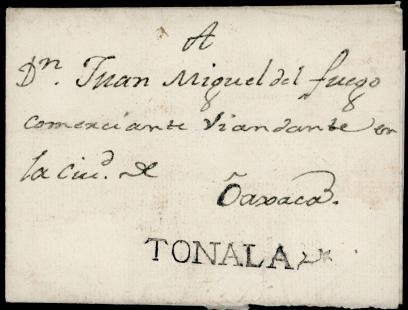 A
Dn. Juan Miguel del fuego
comerciante Viandante en
la Ciud. de
Oaxaca.
TONALA